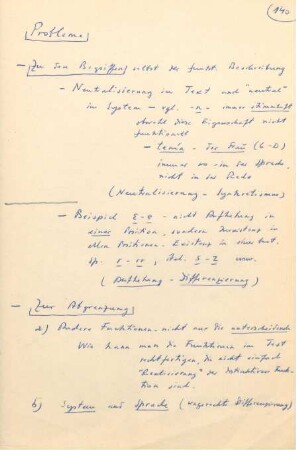 (140)
Probleme
— Zu den Begriffen selbst der funkt. Beschreibung
– Neutralisierung im Text und "neutral"
im System – vgl. -n- immer stimmhaft
obwohl diese Eigenschaft nicht
funktionell
immer in der Sprache,
nicht in der Rede
(Neutralisierung – Synkretismus)
– Beispiel – nicht Aufhebung in
einer Position, sondern in
allen Positionen.
sp. r – rr, ital. s – z usw.
(Aufhebung – Differenzierung)
— Zur Abgrenzung
a) Andere Funktionen – nicht nur die unterscheidende
Wie kann man die Funktionen im Text
rechtfertigen, die nicht einfach
"Realisierung" der Funk-
tion sind.
b) System und Sprache (wagerechte Differenzierung)